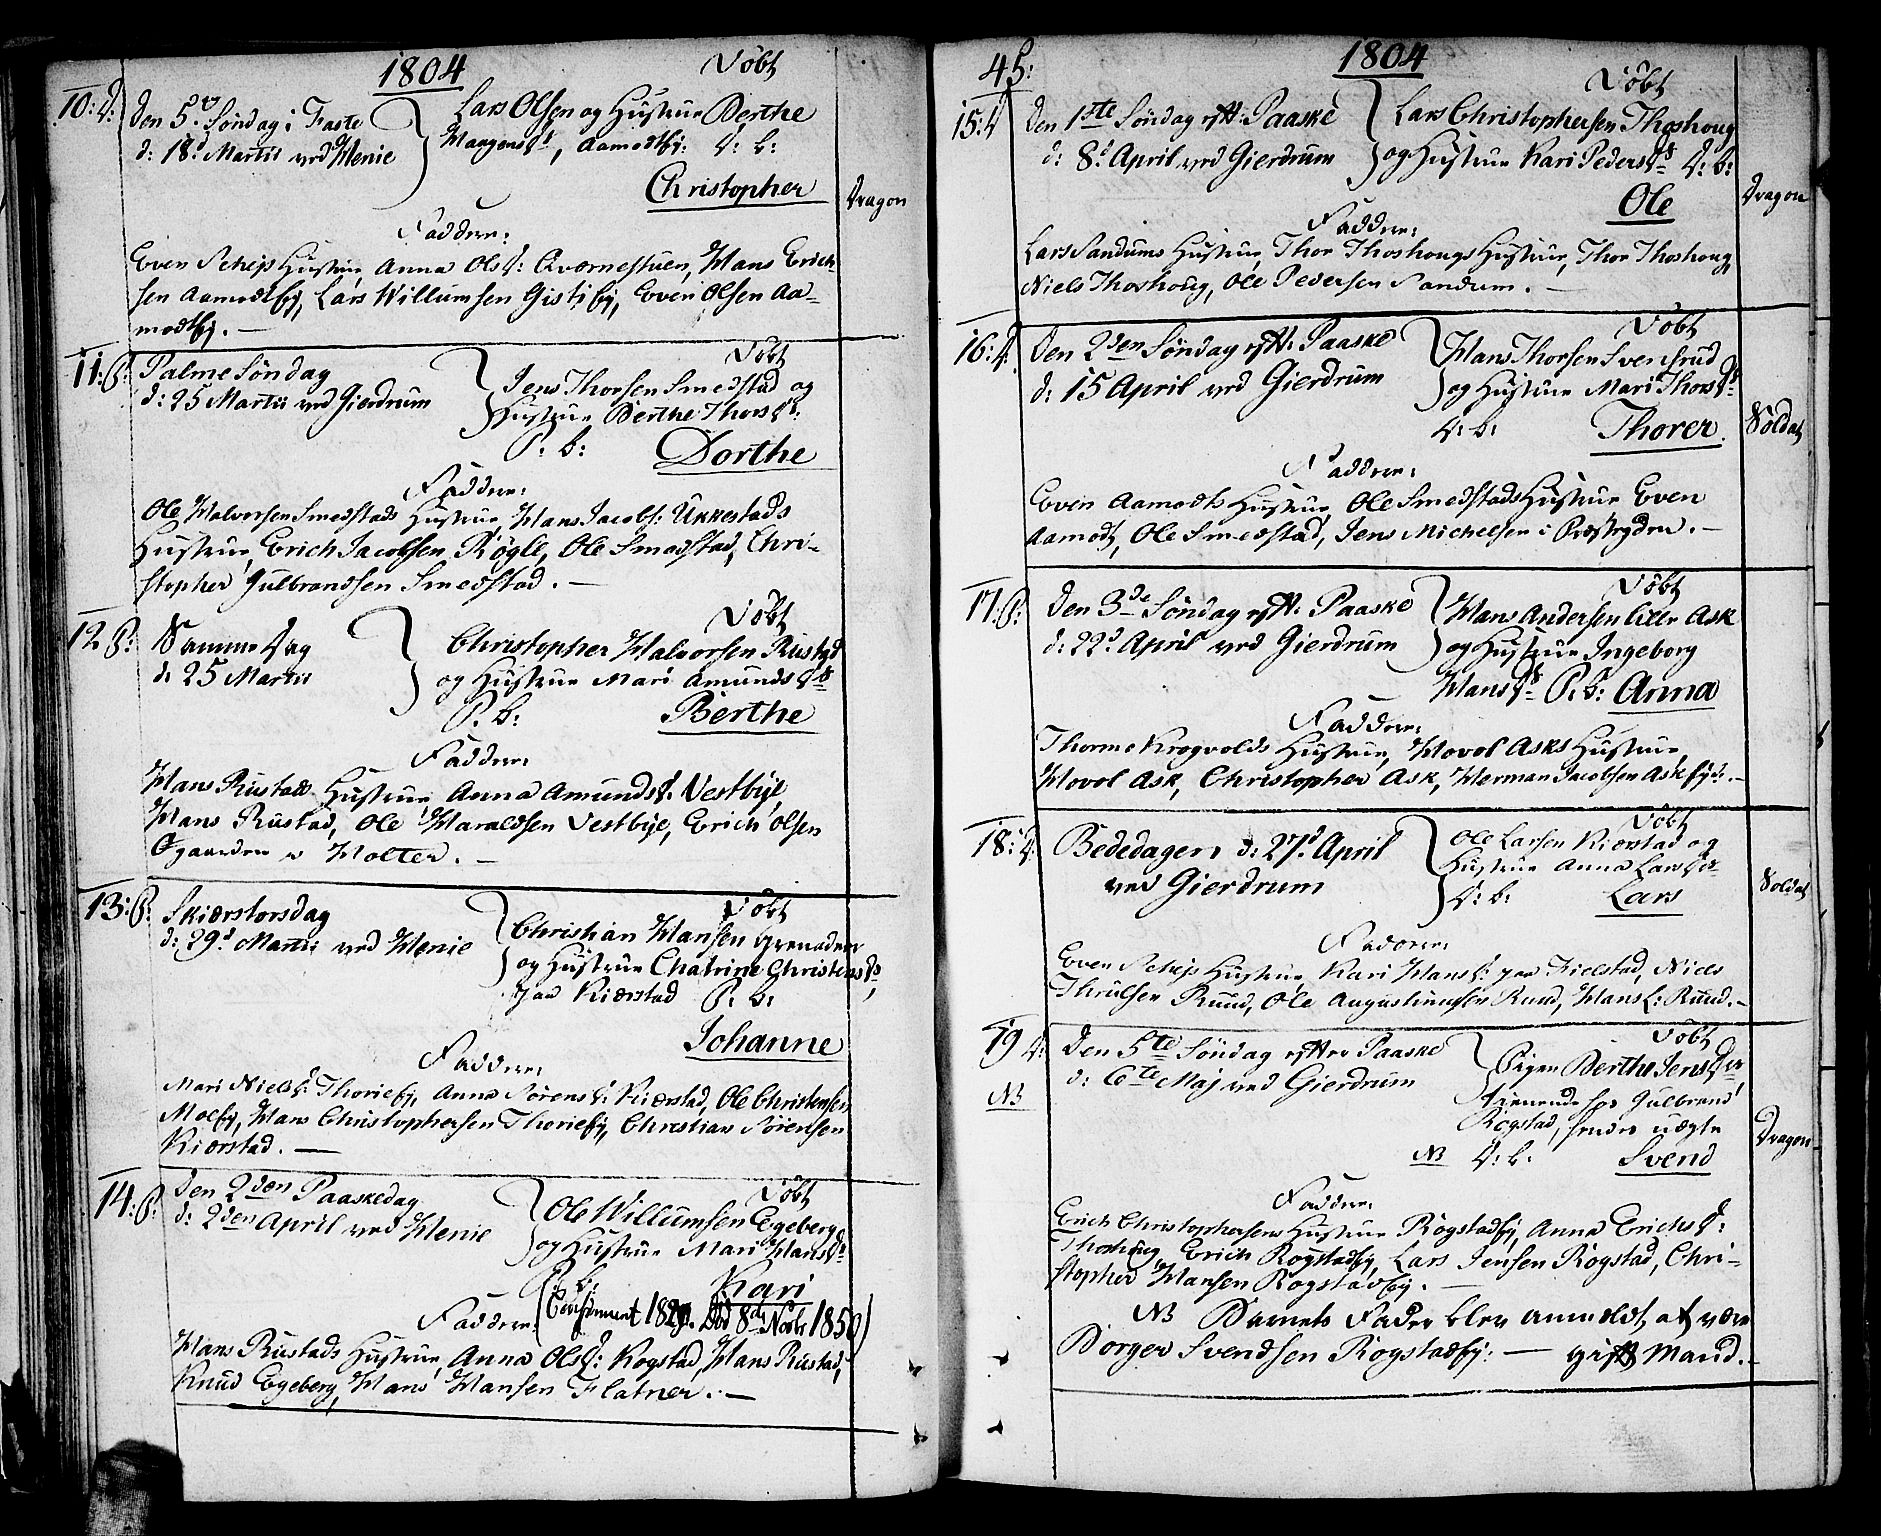 1804
Döbt
10: D:
Den 5te Søndag i Faste
d: 18d Martii ved Henie
Lars Olsen og Hustrue Berthe
Mangensdt, Aamodtby: D: b:
Christopher
Dragon
Faddere:
Even Schejs Hustrue, Anna Olsd: Qværnestuen, Hans Erich-
sen Aamodtby, Lars Willumsen Gistiby, Even Olsen Aa-
modtby. —
11: P:
Palme Søndag
d: 25 Martii ved Gierdrum
Döbt
Jens Thorsen Smedstad og
Hustrue Berthe Thorsdt:
P: b: Dorthe
Faddere:
Ole Halvorsen Smedstads Hustrue, Hans Jacobs: Ukkestads
Hustrue, Erich Jacobsen Røgle, Ole Smedstad, Chri-
stopher Gulbrandsen Smedstad. —
12 P:
Samme Dag
d: 25 Martii
Döbt
Christopher Halvorsen Rustad
og Hustrue Mari Amundsdt
P: b: Berthe
Faddere:
Hans Rustads Hustrue, Anna Amundsd: Vestbye
Hans Rustad, Ole Haraldsen Vestbye, Erich Olsen
Øgaarden v Holter. —
13: P:
Skiærstorsdag
d: 29d Martii ved Henie
Döbt
Christian Hansen Grenadeer
og Hustrue Chatrine Christensdt,
paa Kiærstad P: b:
Johanne
Faddere:
Mari Nielsd: Thorieby, Anna Sørensd: Kiærstad, Ole Christensen
Moeby, Hans Christophersen Thorieby, Christian Sørensen
Kiærstad. —
14: P:
Den 2den Paaskedag
d: 2den April ved Henie
Döbt
Ole Willumsen Egeberg
og Hustrue Mari Hansdt
P: b: Kari
(Confirmeret 1820. Död 8de Novbr 1850)
Faddere:
Hans Rustads Hustrue, Anna Olsd: Rogstad, Hans Rustad,
Knud Egeberg, Hans Hansen Flatner. —
45:
1804
Döbt
15: D
Den 1ste Søndag efter Paaske
d: 8d April ved Gierdrum
Lars Christophersen Thoshoug
og Hustrue Kari Pedersdt D: b:
Ole
Dragon
Faddere:
Lars Sandums Hustrue, Thor Thoshougs Hustrue, Thor Thoshoug,
Niels Thoshoug, Ole Pedersen Sandum. —
16: D.
Den 2den Søndag eft: Paaske
d: 15 April ved Gierdrum
Döbt
Hans Thorsen Svensrud
og Hustrue Mari Thorsdt
D: b: Thorer
Soldat
Faddere:
Even Aamodts Hustrue, Ole Smedstads Hustrue Even
Aamodt, Ole Smedstad, Jens Michelsen i Præstegden. —
17: P:
Den 3de Søndag eft: Paaske
d: 22d April ved Gierdrum
Döbt
Hans Andersen lille Ask
og Hustrue Ingeborg
Hansdt P: b: Anna
Faddere:
Thorme Krogvolds Hustrue, Hovol Asks Hustrue
Hovol Ask, Christopher Ask, Herman Jacobsen Askby. —
18: D.
Bededagen d: 27d April
ved Gierdrum
Döbt
Ole Larsen Kiærstad og
Hustrue Anna Larsdtr
D: b: Lars
Soldat
Faddere:
Even Schejs Hustrue, Kari Hansd: paa Fielstad, Niels
Thrulsen Ruud, Ole Augustinusen Ruud, Hans L: Ruud. —
19 D:
NB
Den 5te Søndag efter Paaske
d: 6te Maj ved Gierdrum
Döbt
Pigen Berthe Jensdtr
tienende hos Gulbrand
Rogstad, hendes uægte
NB D: b: Svend
Dragon
Faddere:
Erich Christophersens Hustrue Rogstadby, Anna Erichsd:
Thoshoug, Erich Rogstadby, Lars Jensen Rogstad, Chri-
stopher Hansen Rogstadby. —
NB Barnets Fader blev anmeldt at være
Borger Svendsen Rogstadby: — gift Mand.